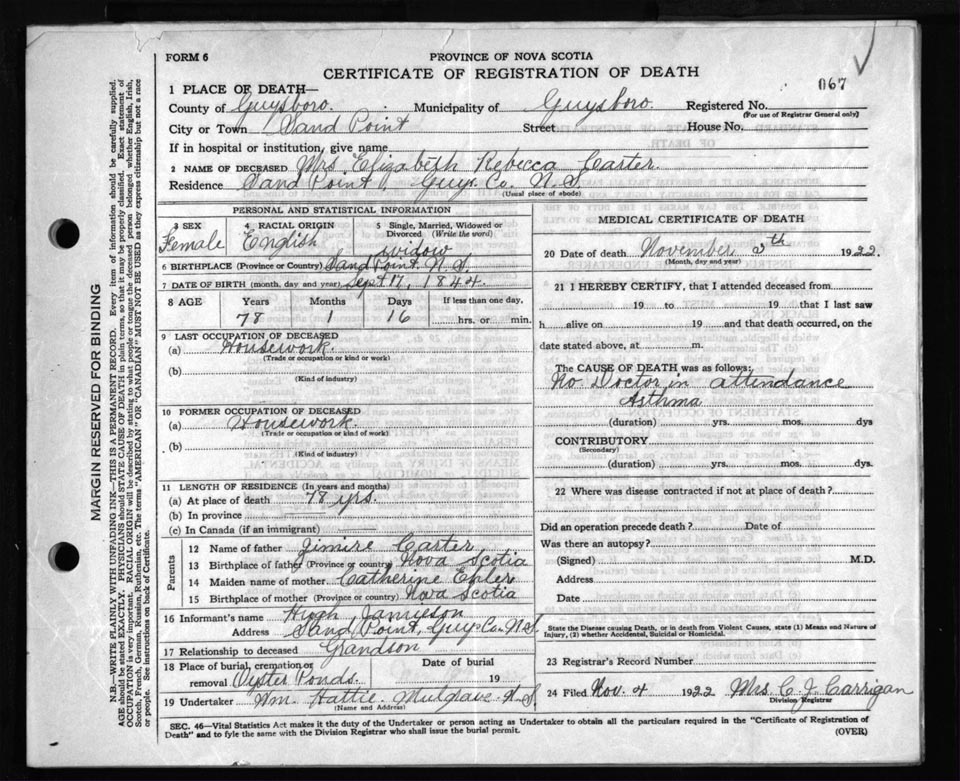 FORM 6
PROVINCE OF NOVA SCOTIA
CERTIFICATE OF REGISTRATION OF DEATH
067
1 PLACE OF DEATH—
County of Guysboro. Municipality of Guysboro. Registered No.
(For use of Registrar General only)
City or Town Sand Point Street House No.
If in hospital or institution, give name
2 NAME OF DECEASED Mrs. Elizabeth Rebecca Carter
Residence Sand Point, Guys. Co. N. S.
(Usual place of abode)
PERSONAL AND STATISTICAL INFORMATION
3 SEX 4 RACIAL ORIGIN 5 Single, Married, Widowed or Divorced (Write the word)
Female English widow
6 BIRTHPLACE (Province or Country) Sand Point. N. S.
7 DATE OF BIRTH (month, day and year) Sept 17, 1844.
8 AGE Years Months Days If less than one day,
78 1 16 hrs. or min.
9 LAST OCCUPATION OF DECEASED
(a) Housework.
(Trade or occupation or kind or work)
(b)
(Kind of industry)
10 FORMER OCCUPATION OF DECEASED
(a) Housework.
(Trade or occupation or kind of work)
(b)
(Kind of industry)
11 LENGTH OF RESIDENCE (In years and months)
(a) At place of death 78 yrs.
(b) In province
(c) In Canada (if an immigrant)
Parents
12 Name of father Carter
13 Birthplace of father (Province or country) Nova Scotia
14 Maiden name of mother Catherine
15 Birthplace of mother (Province or country) Nova Scotia
16 Informant's name Hugh Jamieson
Address Sand Point, Guy. Co. N.S.
17 Relationship to deceased Grandson
18 Place of burial, cremation or removal Oyster Ponds. Date of burial 19
19 Undertaker Wm. Hattie. Mulgrave N.S
(Name and Address)
MEDICAL CERTIFICATE OF DEATH
20 Date of death November th 1922.
(Month, day and year)
21 I HEREBY CERTIFY, that I attended deceased from
19 to 19 that I last saw
h alive on 19 and that death occurred, on the
date stated above, at m.
The CAUSE OF DEATH was as follows:
No Doctor in attendance
Asthma
(duration) yrs. mos. dys
CONTRIBUTORY
(Secondary)
(duration) yrs. mos. dys.
22 Where was disease contracted if not at place of death?
Did an operation precede death? Date of
Was there an autopsy?
(Signed) M.D.
Address
Date
State the Disease causing Death, or in death from Violent Causes, state (1) Means and Nature of
Injury, (2) whether Accidental, Suicidal or Homicidal.
23 Registrar's Record Number
24 Filed Nov. 4 1922 Mrs. C. J. Carrigan
Division Registrar
SEC. 46—Vital Statistics Act makes it the duty of the Undertaker or person acting as Undertaker to obtain all the particulars required in the "Certificate of Registration of
Death" and to fyle the same with the Division Registrar who shall issue the burial permit.
(OVER)
MARGIN RESERVED FOR BINDING
N.B.—WRITE PLAINLY WITH UNFADING INK—THIS IS A PERMANENT RECORD. Every item of information should be carefully supplied.
AGE should be stated EXACTLY. PHYSICIANS should STATE CAUSE OF DEATH in plain terms, so that it may be properly classified. Exact statement of
OCCUPATION is very important. RACIAL ORIGIN will be described by stating to what people or tongue the deceased person belonged, whether English, Irish,
Scotch, French, German, Russian, Ruthenian, etc. The terms "AMERICAN" OR "CANADIAN" MUST NOT BE USED as they express citizenship but not a race
or people. See instructions on back of Certificate.